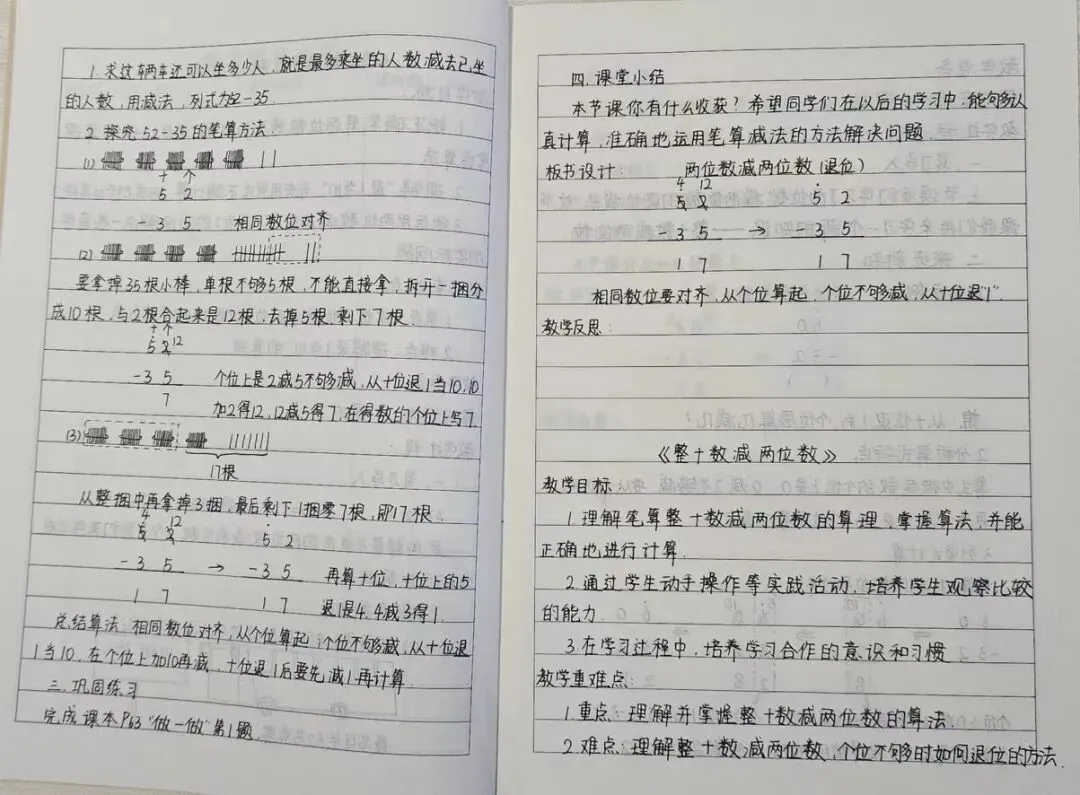 1. 求这辆车还可以坐多少人，就是最多乘坐的人数减去已坐
的人数，用减法，列式为52-35.
2. 探究52-35的笔算方法.
(1)
十 个
5 2
3 5 相同数位对齐
(2)
要拿掉35根小棒，单根不够5根，不能直接拿，拆开一捆分
成10根，与2根合起来是12根，去掉5根，剩下7根.
十 个
5 2 12
-3 5 个位上是2减5不够减，从十位退1当10，10
7 加2得12，12减5得7，在得数的个位上写7.
(3)
17根
从整捆中再拿掉3捆，最后剩下1捆零7根，即17根.
4 12
5 2 5 2
-3 5 → -3 5 再算十位，十位上的5
1 7 1 7 退1是4，4减3得1.
总结算法：相同数位对齐，从个位算起，个位不够减，从十位退
1当10，在个位上加10再减，十位退1后要先减1再计算.
三. 巩固练习
完成课本P63“做一做”第1题.
四. 课堂小结
本节课你有什么收获？希望同学们在以后的学习中，能够认
真计算，准确地运用笔算减法的方法解决问题.
板书设计： 两位数减两位数(退位)
4 12
5 2 5 2
-3 5 → -3 5
1 7 1 7
相同数位要对齐，从个位算起，个位不够减，从十位退“1”.
教学反思：
《整十数减两位数》
教学目标：
1.理解笔算整十数减两位数的算理，掌握算法，并能
正确地进行计算.
2.通过学生动手操作等实践活动，培养学生观察比较
的能力.
3.在学习过程中，培养学习合作的意识和习惯
教学重难点：
1.重点：理解并掌握整十数减两位数的算法.
2.难点：理解整十数减两位数，个位不够时如何退位的方法.